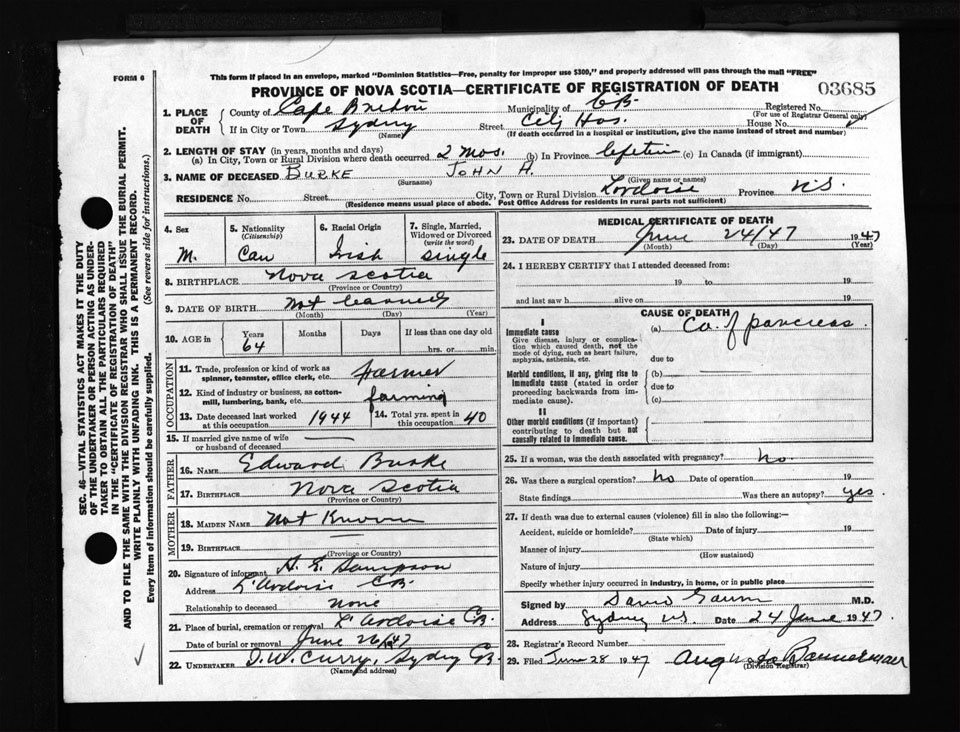 FORM 6
This form if placed in an envelope, marked "Dominion Statistics—Free, penalty for improper use $300," and properly addressed will pass through the mail "FREE"
PROVINCE OF NOVA SCOTIA—CERTIFICATE OF REGISTRATION OF DEATH
03685
1. PLACE OF DEATH
County of Cape Breton Municipality of C B. Registered No.
(For use of Registrar General only)
If in City or Town Sydney Street City Hos. House No.
(Name) (If death occurred in a hospital or institution, give the name instead of street and number)
2. LENGTH OF STAY (in years, months and days)
(a) In City, Town or Rural Division where death occurred 2 mos. (b) In Province lifetime (c) In Canada (if immigrant)
3. NAME OF DECEASED BURKE JOHN A.
(Surname) (Given name or names)
RESIDENCE No. Street City, Town or Rural Division Lordoise Province N.S.
(Residence means usual place of abode. Post Office Address for residents in rural parts not sufficient)
4. Sex M.
5. Nationality (Citizenship) Can
6. Racial Origin Irish
7. Single, Married, Widowed or Divorced (write the word) single
8. BIRTHPLACE Nova Scotia
(Province or Country)
9. DATE OF BIRTH Not learned
(Month) (Day) (Year)
10. AGE in Years 64 Months Days If less than one day old
hrs. or min.
OCCUPATION
11. Trade, profession or kind of work as spinner, teamster, office clerk, etc. Farmer
12. Kind of industry or business, as cotton-mill, lumbering, bank, etc. farming
13. Date deceased last worked at this occupation 1944 14. Total yrs. spent in this occupation 40
15. If married give name of wife or husband of deceased —
FATHER
16. NAME Edward Burke
17. BIRTHPLACE Nova Scotia
(Province or Country)
MOTHER
18. MAIDEN NAME Not Known
19. BIRTHPLACE —
(Province or Country)
20. Signature of informant A. E. Sampson
Address L'Ardoise CB
Relationship to deceased None
21. Place of burial, cremation or removal L'Ardoise C.B.
Date of burial or removal June 26/47
22. UNDERTAKER D. W. Curry, Sydney CB.
(Name and address)
MEDICAL CERTIFICATE OF DEATH
23. DATE OF DEATH June 24/47 1947
(Month) (Day) (Year)
24. I HEREBY CERTIFY that I attended deceased from:
19 to 19
and last saw h alive on 19
CAUSE OF DEATH
I
Immediate cause
Give disease, injury or complication which caused death, not the mode of dying, such as heart failure, asphyxia, asthenia, etc.
(a) Ca. of pancreas.
due to
Morbid conditions, if any, giving rise to immediate cause (stated in order proceeding backwards from immediate cause).
(b)
due to
(c)
II
Other morbid conditions (if important) contributing to death but not causally related to immediate cause.
25. If a woman, was the death associated with pregnancy? no.
26. Was there a surgical operation? no Date of operation 19
State findings Was there an autopsy? yes.
27. If death was due to external causes (violence) fill in also the following:—
Accident, suicide or homicide? Date of injury 19
(State which)
Manner of injury
(How sustained)
Nature of injury
Specify whether injury occurred in industry, in home, or in public place
Signed by David M.D.
Address Sydney N.S. Date 24 June 1947
28. Registrar's Record Number
29. Filed June 28 1947 Augusta Bannerman
(Division Registrar)
SEC. 46—VITAL STATISTICS ACT MAKES IT THE DUTY
OF THE UNDERTAKER OR PERSON ACTING AS UNDER-
TAKER TO OBTAIN ALL THE PARTICULARS REQUIRED
IN THE "CERTIFICATE OF REGISTRATION OF DEATH"
AND TO FILE THE SAME WITH THE DIVISION REGISTRAR WHO SHALL ISSUE THE BURIAL PERMIT.
WRITE PLAINLY WITH UNFADING INK. THIS IS A PERMANENT RECORD.
Every item of information should be carefully supplied. (See reverse side for instructions.)